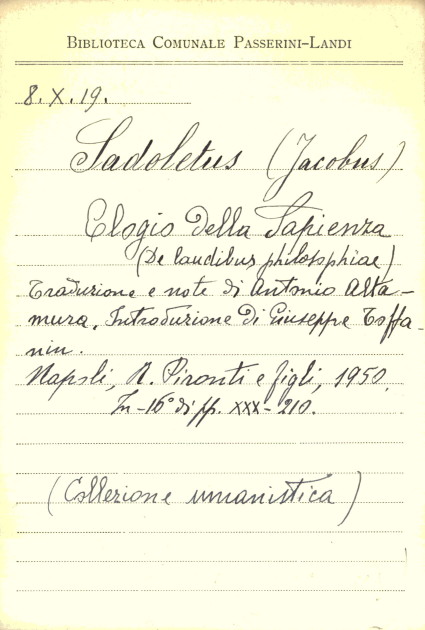 BIBLIOTECA COMUNALE PASSERINI-LANDI
8. X. 19.
Sadoletus (Jacobus)
Elogio della Sapienza
(De laudibus philosophiae)
Traduzione e note di Antonio Alta-
mura. Introduzione di Giuseppe Toffa-
nin.
Napoli, R. Pironti e figli, 1950.
In-16° di pp. XXX-210.
(Collezione umanistica)